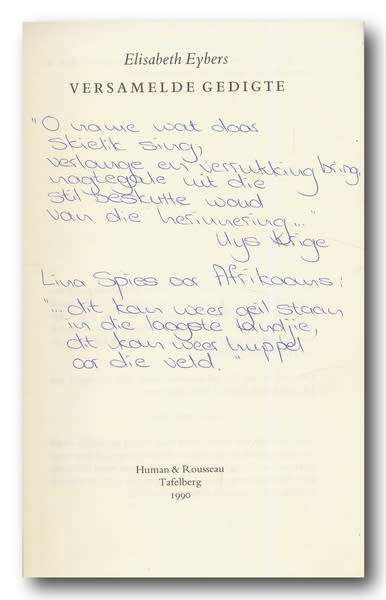 Elisabeth Eybers
VERSAMELDE GEDIGTE
"O name wat daar
skielik sing,
verlange en verrukking bring,
nagtegale uit die
stil beskutte woud
van die herinnering..."
Uys Krige
Lina Spies oor Afrikaans:
"... dit kan weer geil staan
in die laagste landjie,
dit kan weer huppel
oor die veld."
Human & Rousseau
Tafelberg
1990